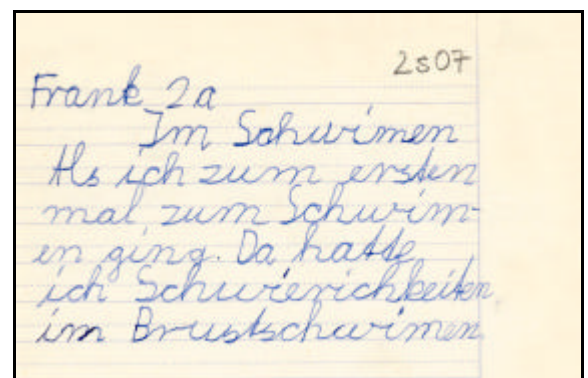 2s07
Frank 2a
Im Schwimen
Als ich zum ersten
mal zum Schwim-
en ging. Da hatte
ich Schwierichkeiten
im Brustschwimen